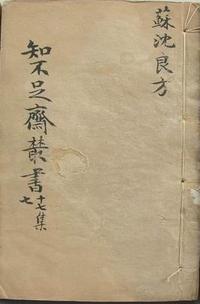 蘇沈良方
知不足齋叢書
十七集
七